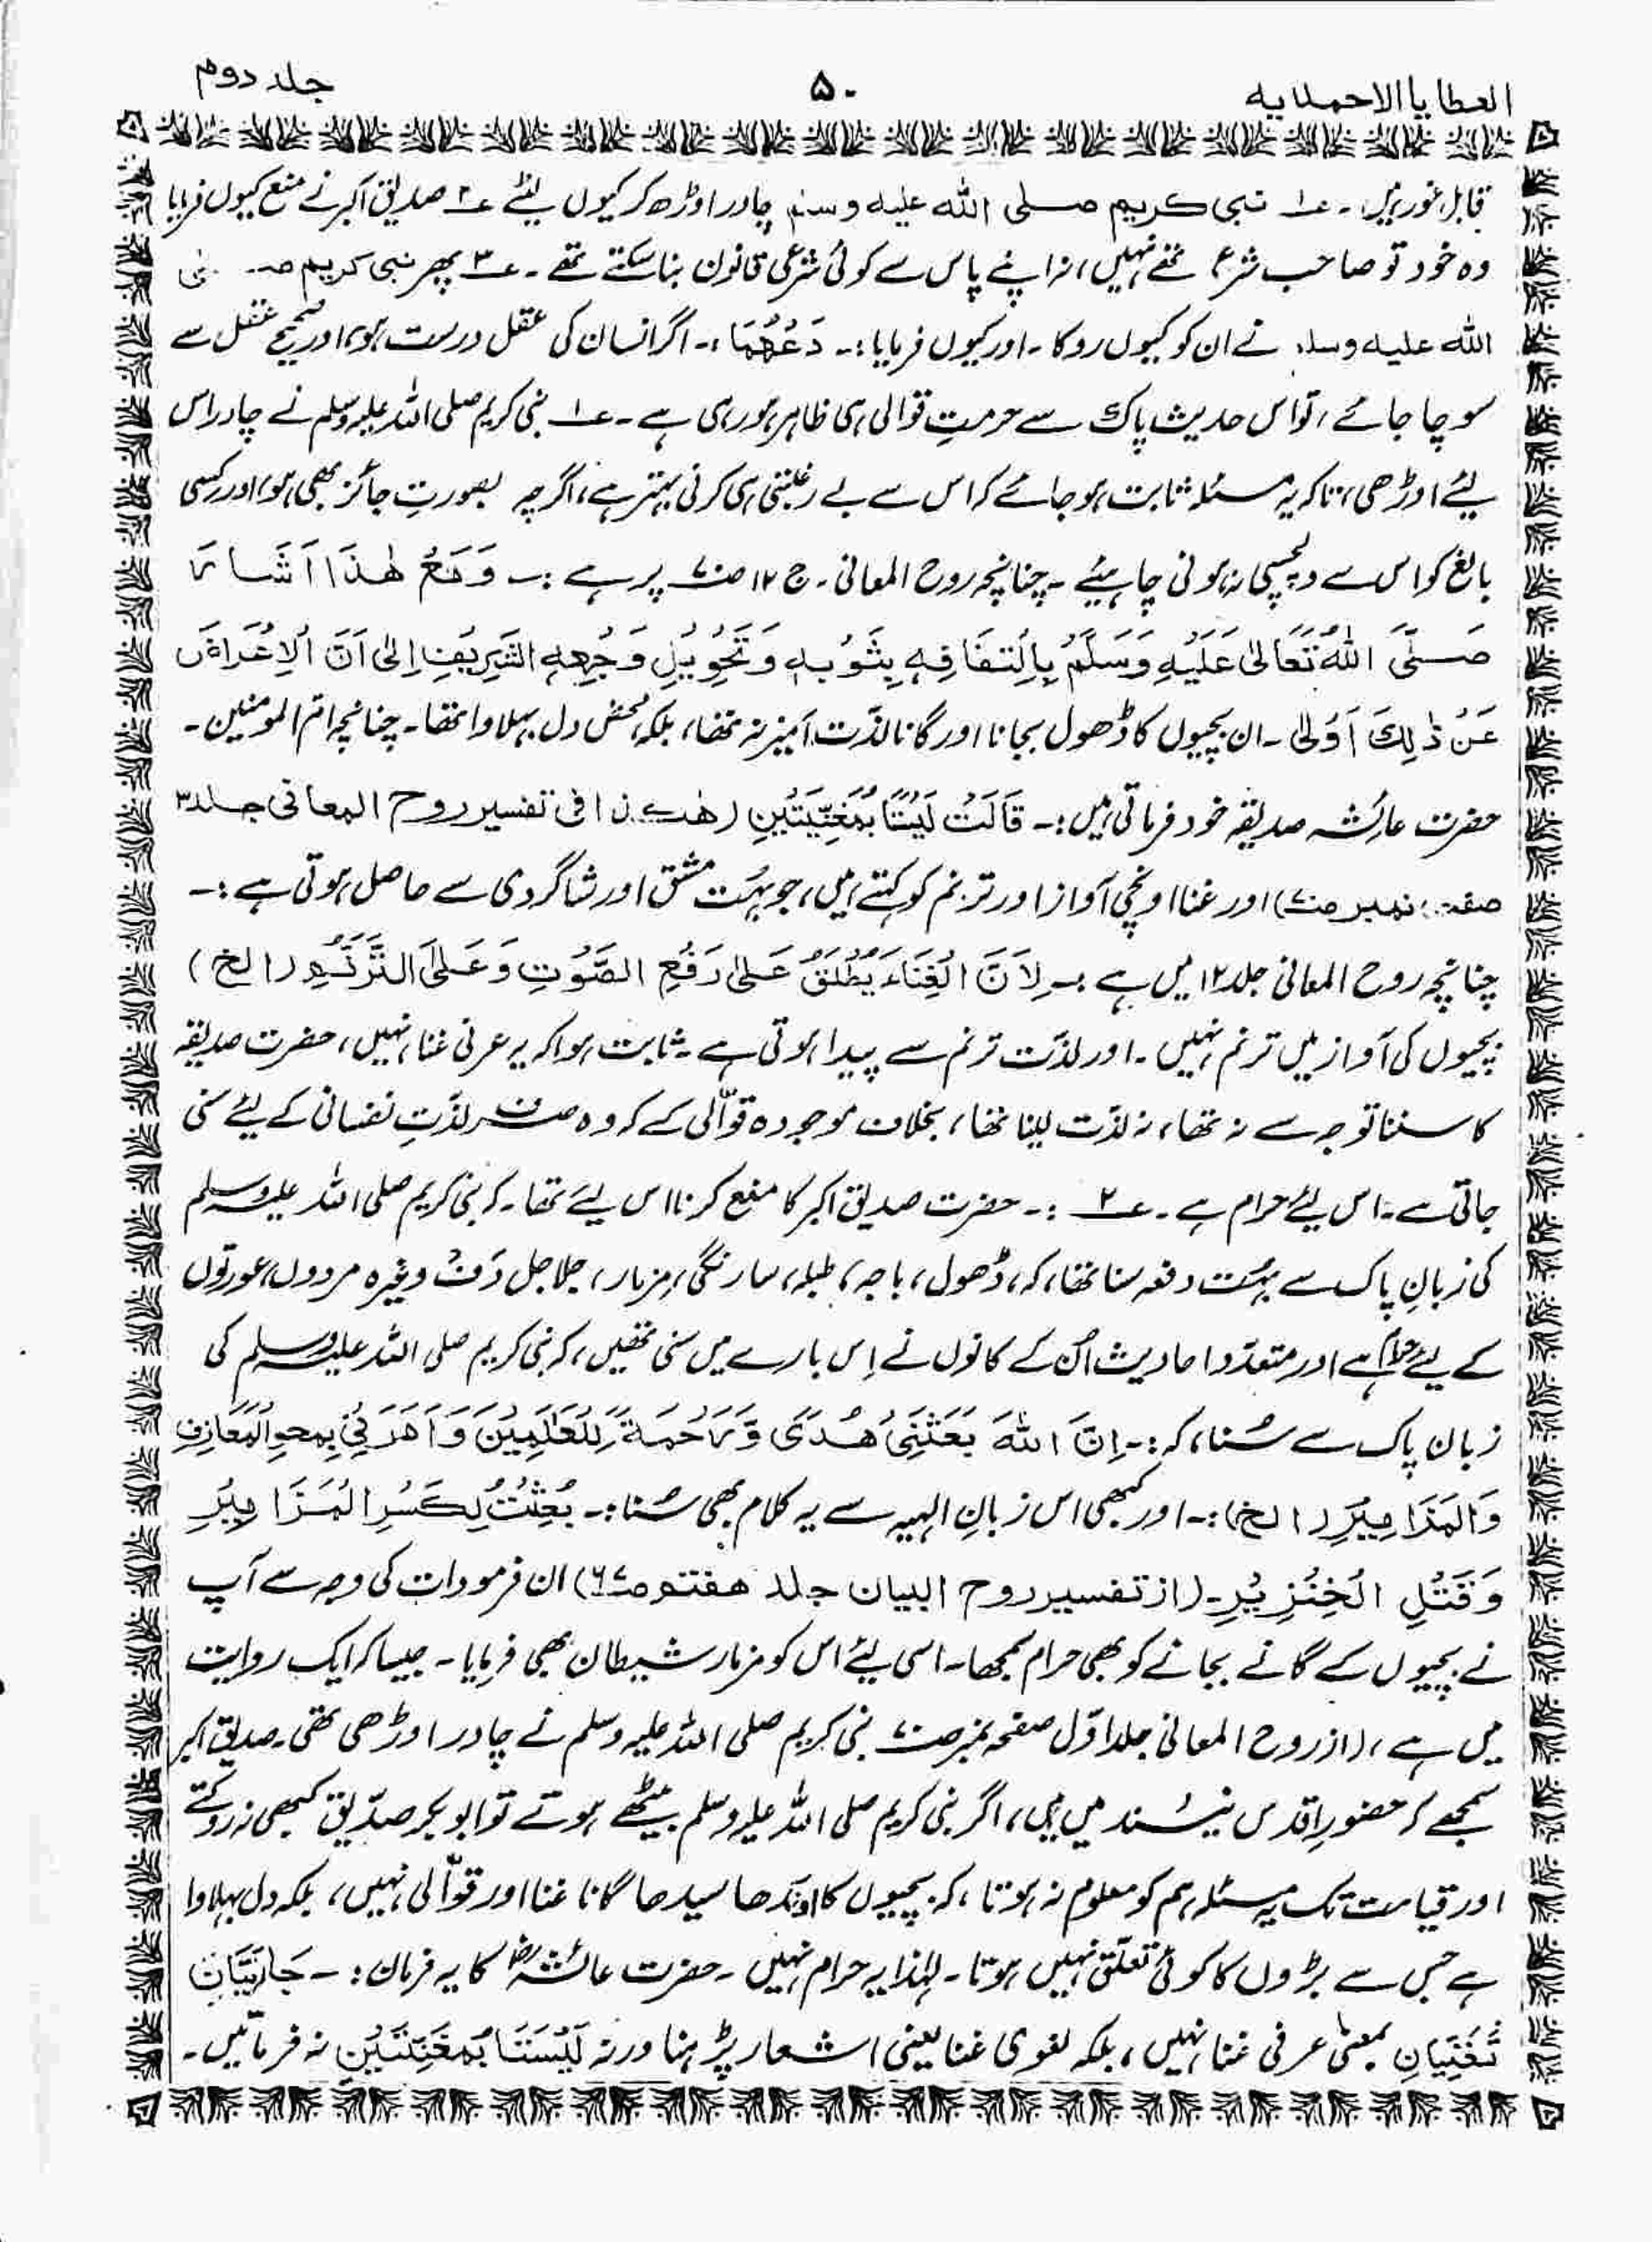 العطایا الاحمدیه ۵۰ جلد دوم
قابل غور ہیں۔ ۱؎ نبی کریم صلی اللہ علیہ وسلم چادر اوڑھ کر کیوں لیٹے ۲؎ صدیق اکبر نے منع کیوں فرمایا
وہ خود تو صاحب شرع تھے نہیں، نہ اپنے پاس سے کوئی شرعی قانون بنا سکتے تھے۔ ۳؎ پھر نبی کریم صلی
اللہ علیہ وسلم نے ان کو کیوں روکا۔ اور کیوں فرمایا:۔ دَعْهُمَا،۔ اگر انسان کی عقل درست ہو، اور صحیح عقل سے
سوچا جائے، تو اس حدیث پاک سے حرمتِ قوالی ہی ظاہر ہو رہی ہے۔ ۱؎ نبی کریم صلی اللہ علیہ وسلم نے چادر اس
لیئے اوڑھی، تاکہ یہ مسئلہ ثابت ہو جائے کہ اس سے بے رغبتی ہی کرنی بہتر ہے، اگرچہ بصورتِ جائز بھی ہو، اور کسی
بالغ کو اس سے دلچسپی نہ ہونی چاہیئے۔ چنانچہ روح المعانی۔ ج ۱۲ صـ پر ہے :۔ وَمَعَ هٰذَا اَشَارَ
صَلَّى اللّٰهُ تَعَالٰى عَلَيْهِ وَسَلَّمَ بِاِلْتِفَافِهٖ بِثَوْبِهٖ وَتَحْوِيْلِ وَجْهِهِ الشَّرِيْفِ اِلٰى اَنَّ الْاِعْرَاضَ
عَنْ ذٰلِكَ اَوْلٰى۔ ان بچیوں کا ڈھول بجانا اور گانا لذّت آمیز نہ تھا، بلکہ محض دل بہلاوا تھا۔ چنانچہ ام المومنین۔
حضرت عائشہ صدیقہ خود فرماتی ہیں :۔ قَالَتْ لَيْسَتَا بِمُغَنِّيَتَيْنِ (هٰكذا فی تفسیر روح المعانی جلد ۳
صفحہ نمبر صـ) اور غنا اونچی آواز اور ترنم کو کہتے ہیں، جو بہت مشق اور شاگردی سے حاصل ہوتی ہے :۔
چنانچہ روح المعانی جلد ۱۲ میں ہے :۔ لِاَنَّ الْغِنَاءَ يُطْلَقُ عَلٰى رَفْعِ الصَّوْتِ وَعَلَى التَّرَنُّمِ (الخ)
بچیوں کی آواز میں ترنم نہیں۔ اور لذّت ترنم سے پیدا ہوتی ہے۔ ثابت ہوا کہ یہ عرفی غنا نہیں، حضرت صدیقہ
کا سننا توجہ سے نہ تھا، نہ لذّت لینا تھا، بخلاف موجودہ قوّالی کے کہ وہ صرف لذّتِ نفسانی کے لیئے سنی
جاتی ہے۔ اس لیئے حرام ہے۔ ۲؎ :۔ حضرت صدیق اکبر کا منع کرنا اس لیئے تھا۔ کہ نبی کریم صلی اللہ علیہ وسلم
کی زبانِ پاک سے بہت دفعہ سنا تھا، کہ، ڈھول، باجہ، طبلہ، سارنگی، مزمار، جلاجل دَف وغیرہ مردوں، عورتوں
کے لیے حرام ہے اور متعدّد احادیث اُن کے کانوں نے اِس بارے میں سنی تھیں، کہ نبی کریم صلی اللہ علیہ وسلم کی
زبان پاک سے سُنا، کہ :۔ اِنَّ اللّٰهَ بَعَثَنِىْ هُدًى وَّرَحْمَةً لِّلْعٰلَمِيْنَ وَاَمَرَنِىْ بِمَحْوِ الْمَعَازِفِ
وَالْمَزَامِيْرِ (الخ) :۔ اور کبھی اس زبانِ الہیہ سے یہ کلام بھی سُنا :۔ بُعِثْتُ لِكَسْرِ الْمَزَامِيْرِ
وَقَتْلِ الْخِنْزِيْرِ۔ (از تفسیر روح البیان جلد هفتم صـ) ان فرمودات کی وجہ سے آپ
نے بچیوں کے گانے بجانے کو بھی حرام سمجھا۔ اسی لیئے اس کو مزمار شیطان بھی فرمایا۔ جیسا کہ ایک روایت
میں ہے، (از روح المعانی جلد اوّل صفحہ نمبر صـ نبی کریم صلی اللہ علیہ وسلم نے چادر اوڑھی تھی۔ صدیق اکبر
سمجھے کہ حضورِ اقدس نیند میں ہیں، اگر نبی کریم صلی اللہ علیہ وسلم بیٹھے ہوتے تو ابوبکر صدّیق کبھی نہ روکتے
اور قیامت تک یہ مسئلہ ہم کو معلوم نہ ہوتا، کہ بچیوں کا اوندھا سیدھا گانا غنا اور قوّالی نہیں، بلکہ دل بہلاوا
ہے جس سے بڑوں کا کوئی تعلّق نہیں ہوتا۔ لہٰذا یہ حرام نہیں۔ حضرت عائشہؓ کا یہ فرمان :۔ جَارِيَتَانِ
تُغَنِّيَانِ بمعنٰی عرفی غنا نہیں، بلکہ لغوی غنا یعنی اشعار پڑہنا ورنہ لَيْسَتَا بِمُغَنِّيَتَيْنِ نہ فرماتیں۔